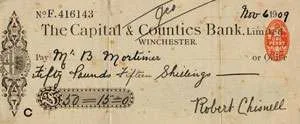 No F. 416143 Nov 6 1909
The Capital & Counties Bank, Limited
WINCHESTER.
Pay Mr B Mortimer or Order
Fifty Pounds Fifteen Shillings
£50-15-0 Robert Chisnell
C